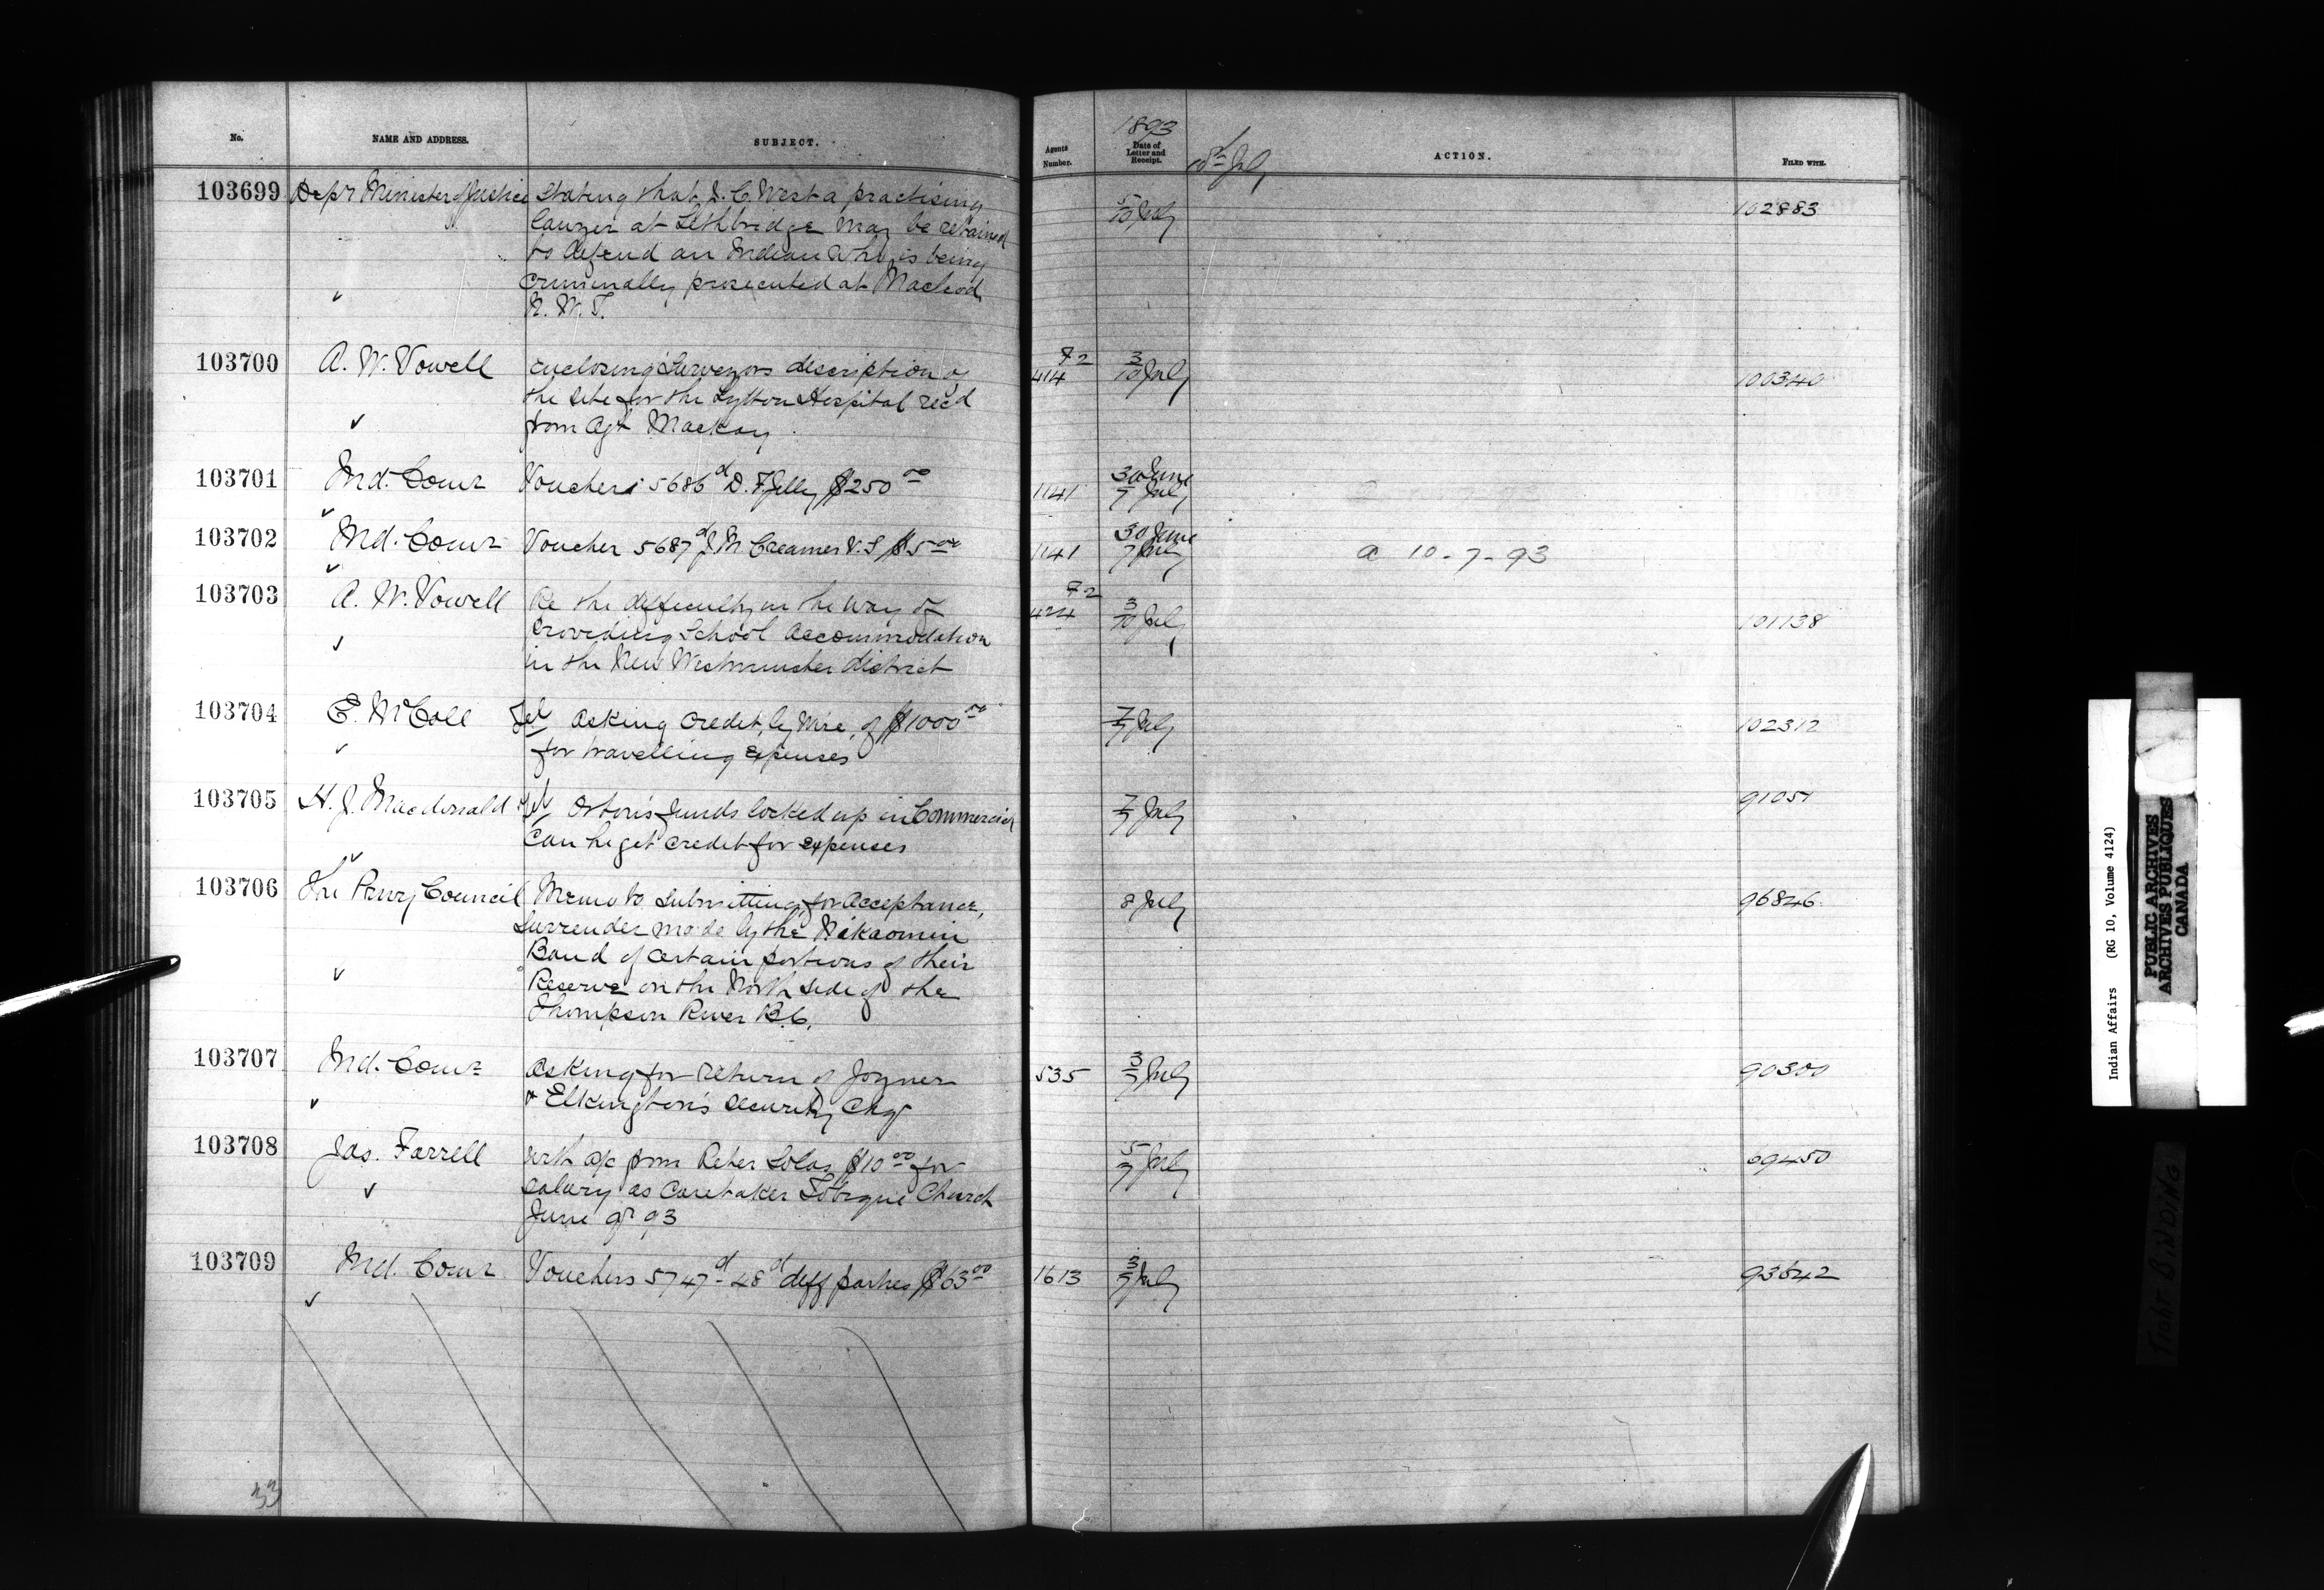 No. NAME AND ADDRESS. SUBJECT. Agents Number. 1893 Date of Letter and Receipt. 10th July ACTION. FILED WITH.
103699 Depy Minister of Justice Stating that J. C. West a practising 5/10 July 102883
lawyer at Lethbridge may be retained
to defend an Indian who is being
criminally prosecuted at Macleod
N. W. T.
103700 A. W. Vowell Enclosing Surveyors description of 72 414 3/10 July 100340
the site for the Lytton Hospital rec'd
from Agt Mackay
103701 Ind. Comr Vouchers 5686 d D. F. Jelly $250 00 1141 30 June 7 July
103702 Ind. Comr Voucher 5687 d J. M. Creamer V.S $5 00 1141 30 June 7 July a 10-7-93
103703 A. W. Vowell Re the difficulty in the way of 72 424 3/10 July 101138
Providing School accommodation
in the New Westminster district
103704 E. McColl Tel asking credit, by wire, of $1000 00 7/7 July 102312
for travelling expenses
103705 H. J. Macdonald Tel Orton's funds locked up in Commercial 7/7 July 91051
Can he get credit for expenses
103706 The Privy Council Memo to submitting for acceptance, 8 July 96846
Surrender made by the Nikaomin
Band of certain portions of their
Reserve on the North side of the
Thompson River B.C.
103707 Ind. Comr Asking for return of Joyner 535 3/7 July 90300
& Elkington's security Chq
103708 Jas. Farrell with a/c from Peter Solas $10 00 for 5/7 July 69450
salary as caretaker Tobique Church
June qr 93
103709 Ind. Comr Vouchers 5747 d - 48 d diff parties $63 00 1613 3/7 July 93642
33
Indian Affairs (RG 10, Volume 4124)
PUBLIC ARCHIVES
ARCHIVES PUBLIQUES
CANADA
TIGHT BINDING